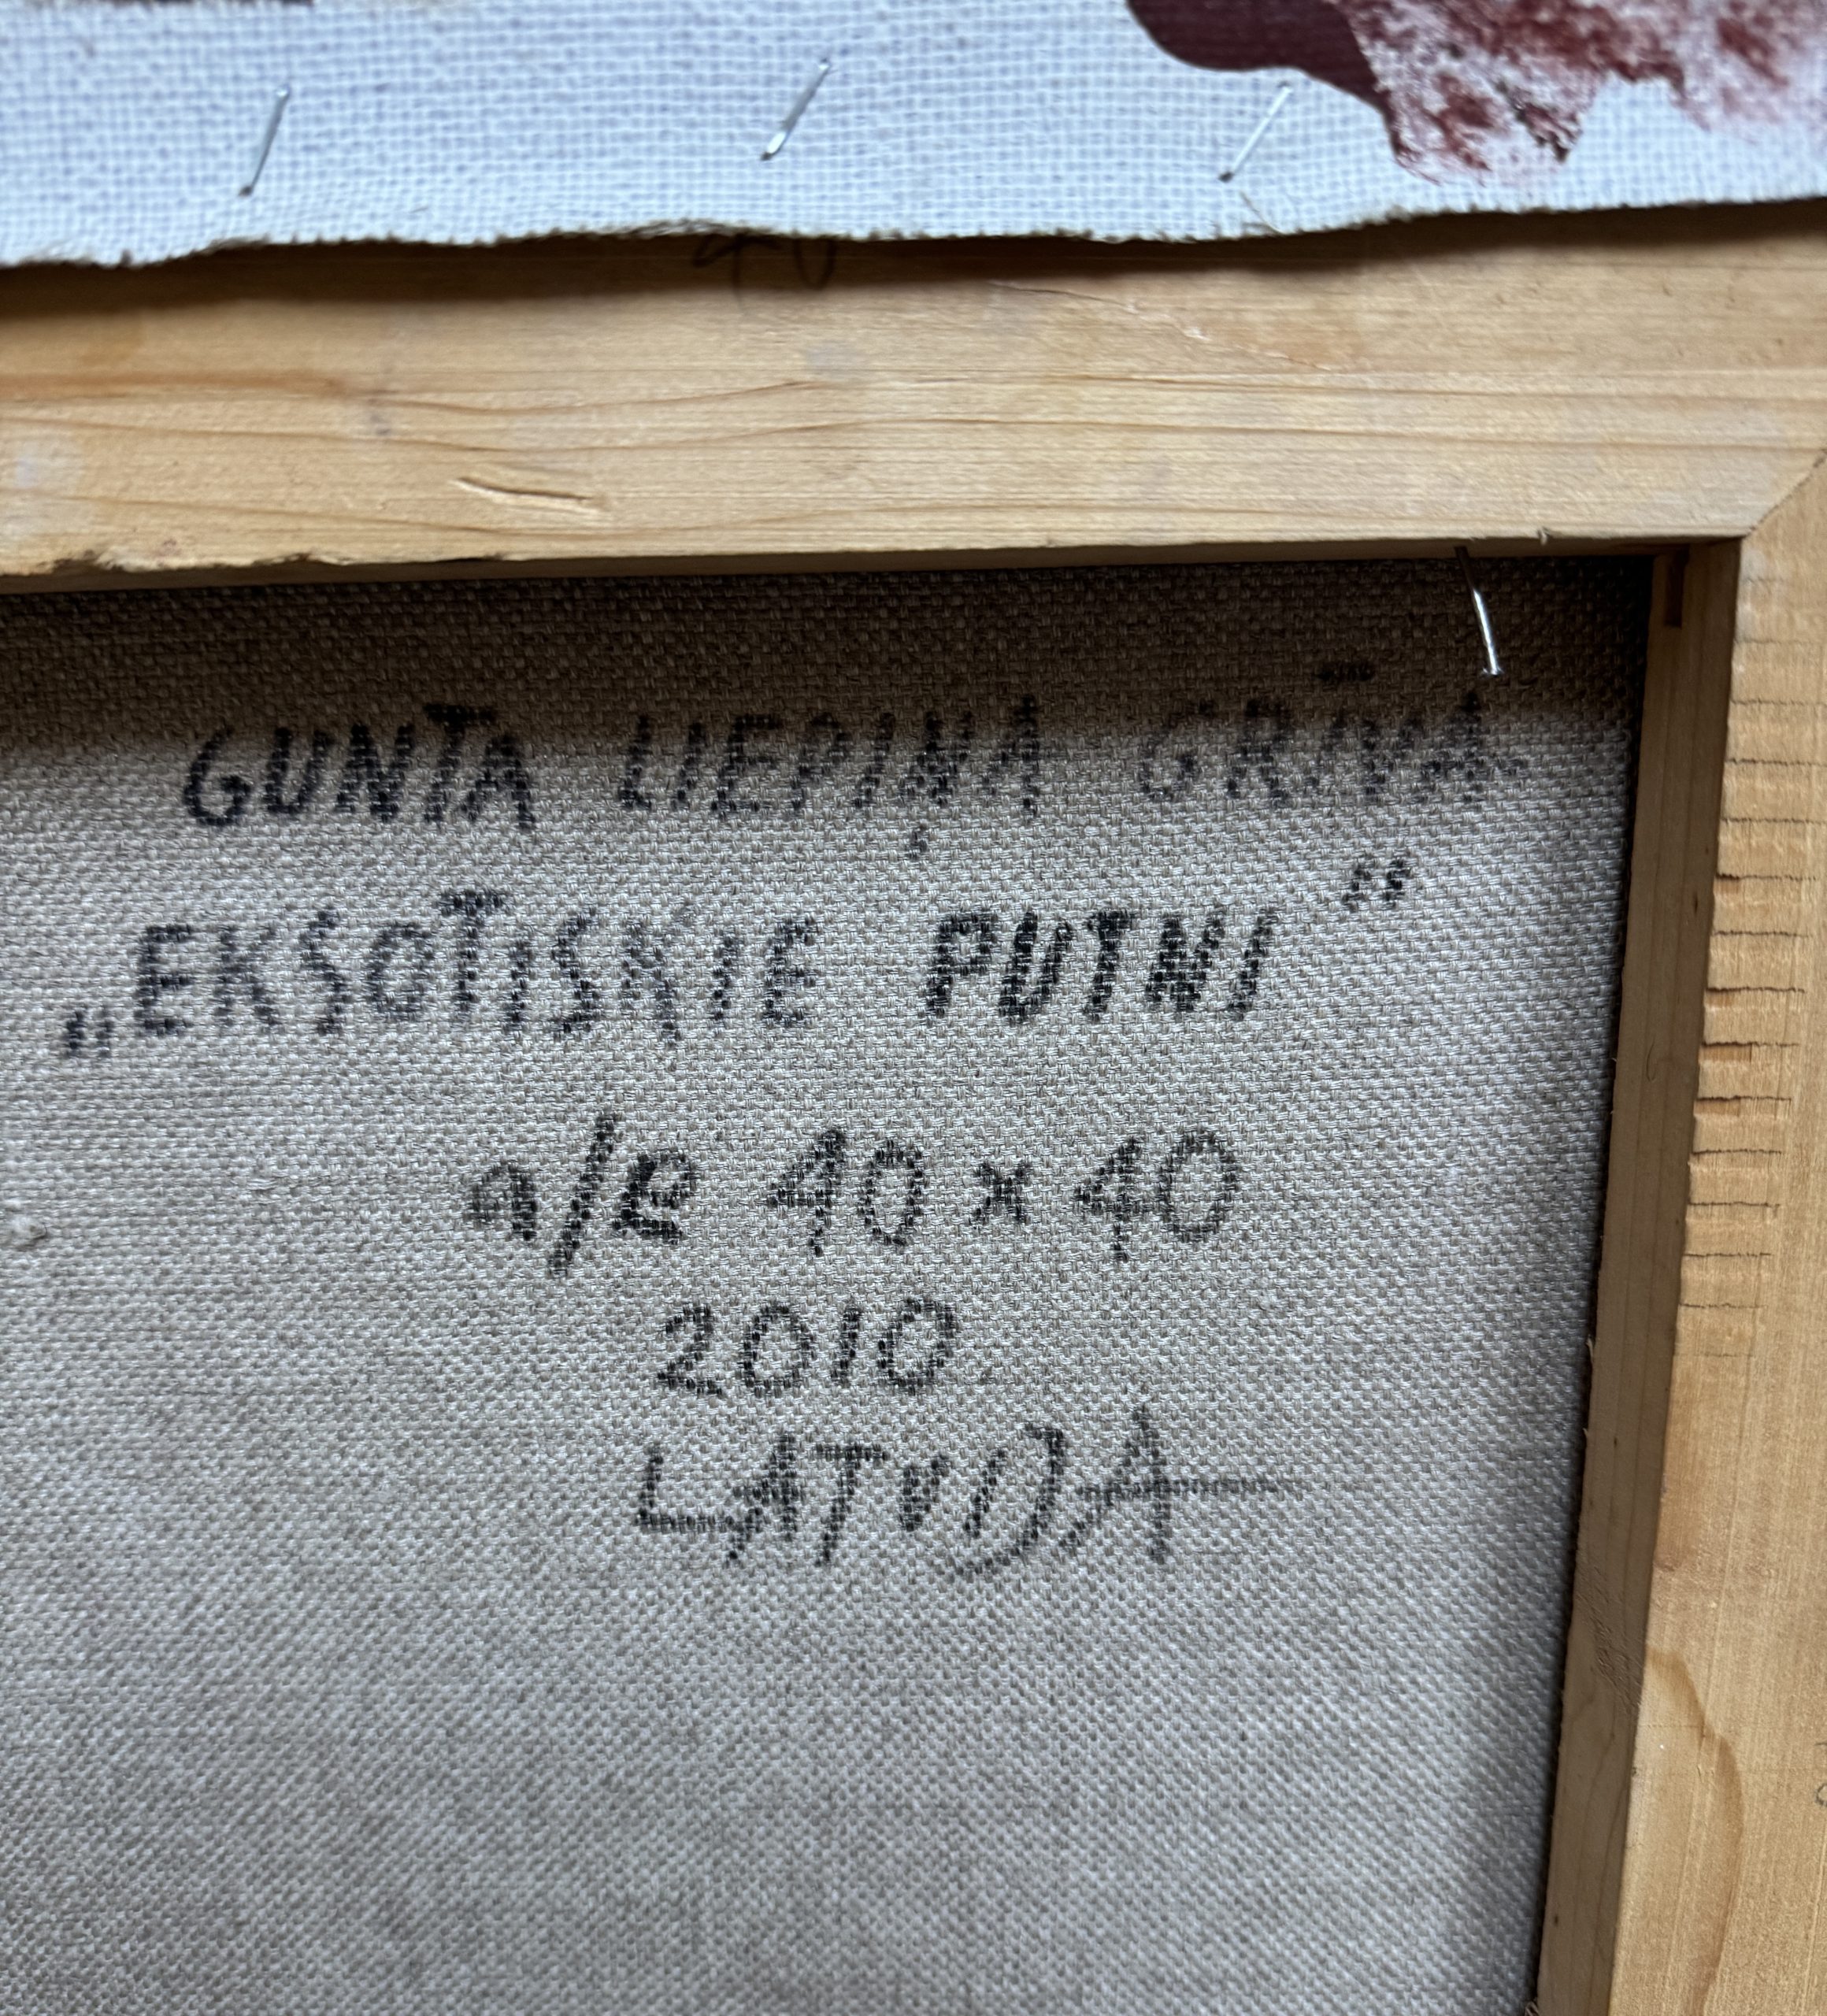 40
GUNTA LIEPIŅA GRĪVA
„EKSOTISKIE PUTNI”
a/e 40 x 40
2010
LATVIJA